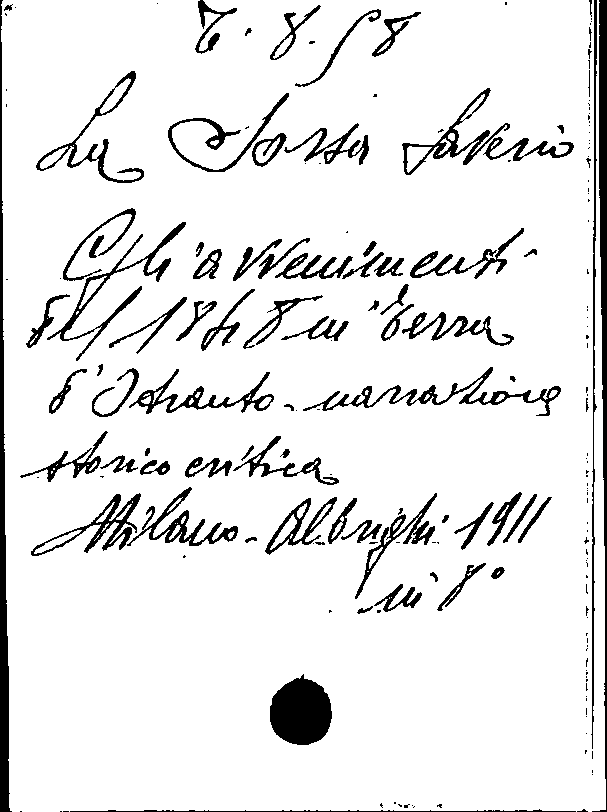 7.8.58
La Sorsa Saverio
Gli avvenimenti
del 1848 in Terra
d'Otranto - narrazione
storico critica
Milano - Albrighi 1911
in 8°